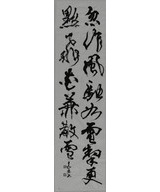 忽作風馳如電掣更
點飛花兼散雪